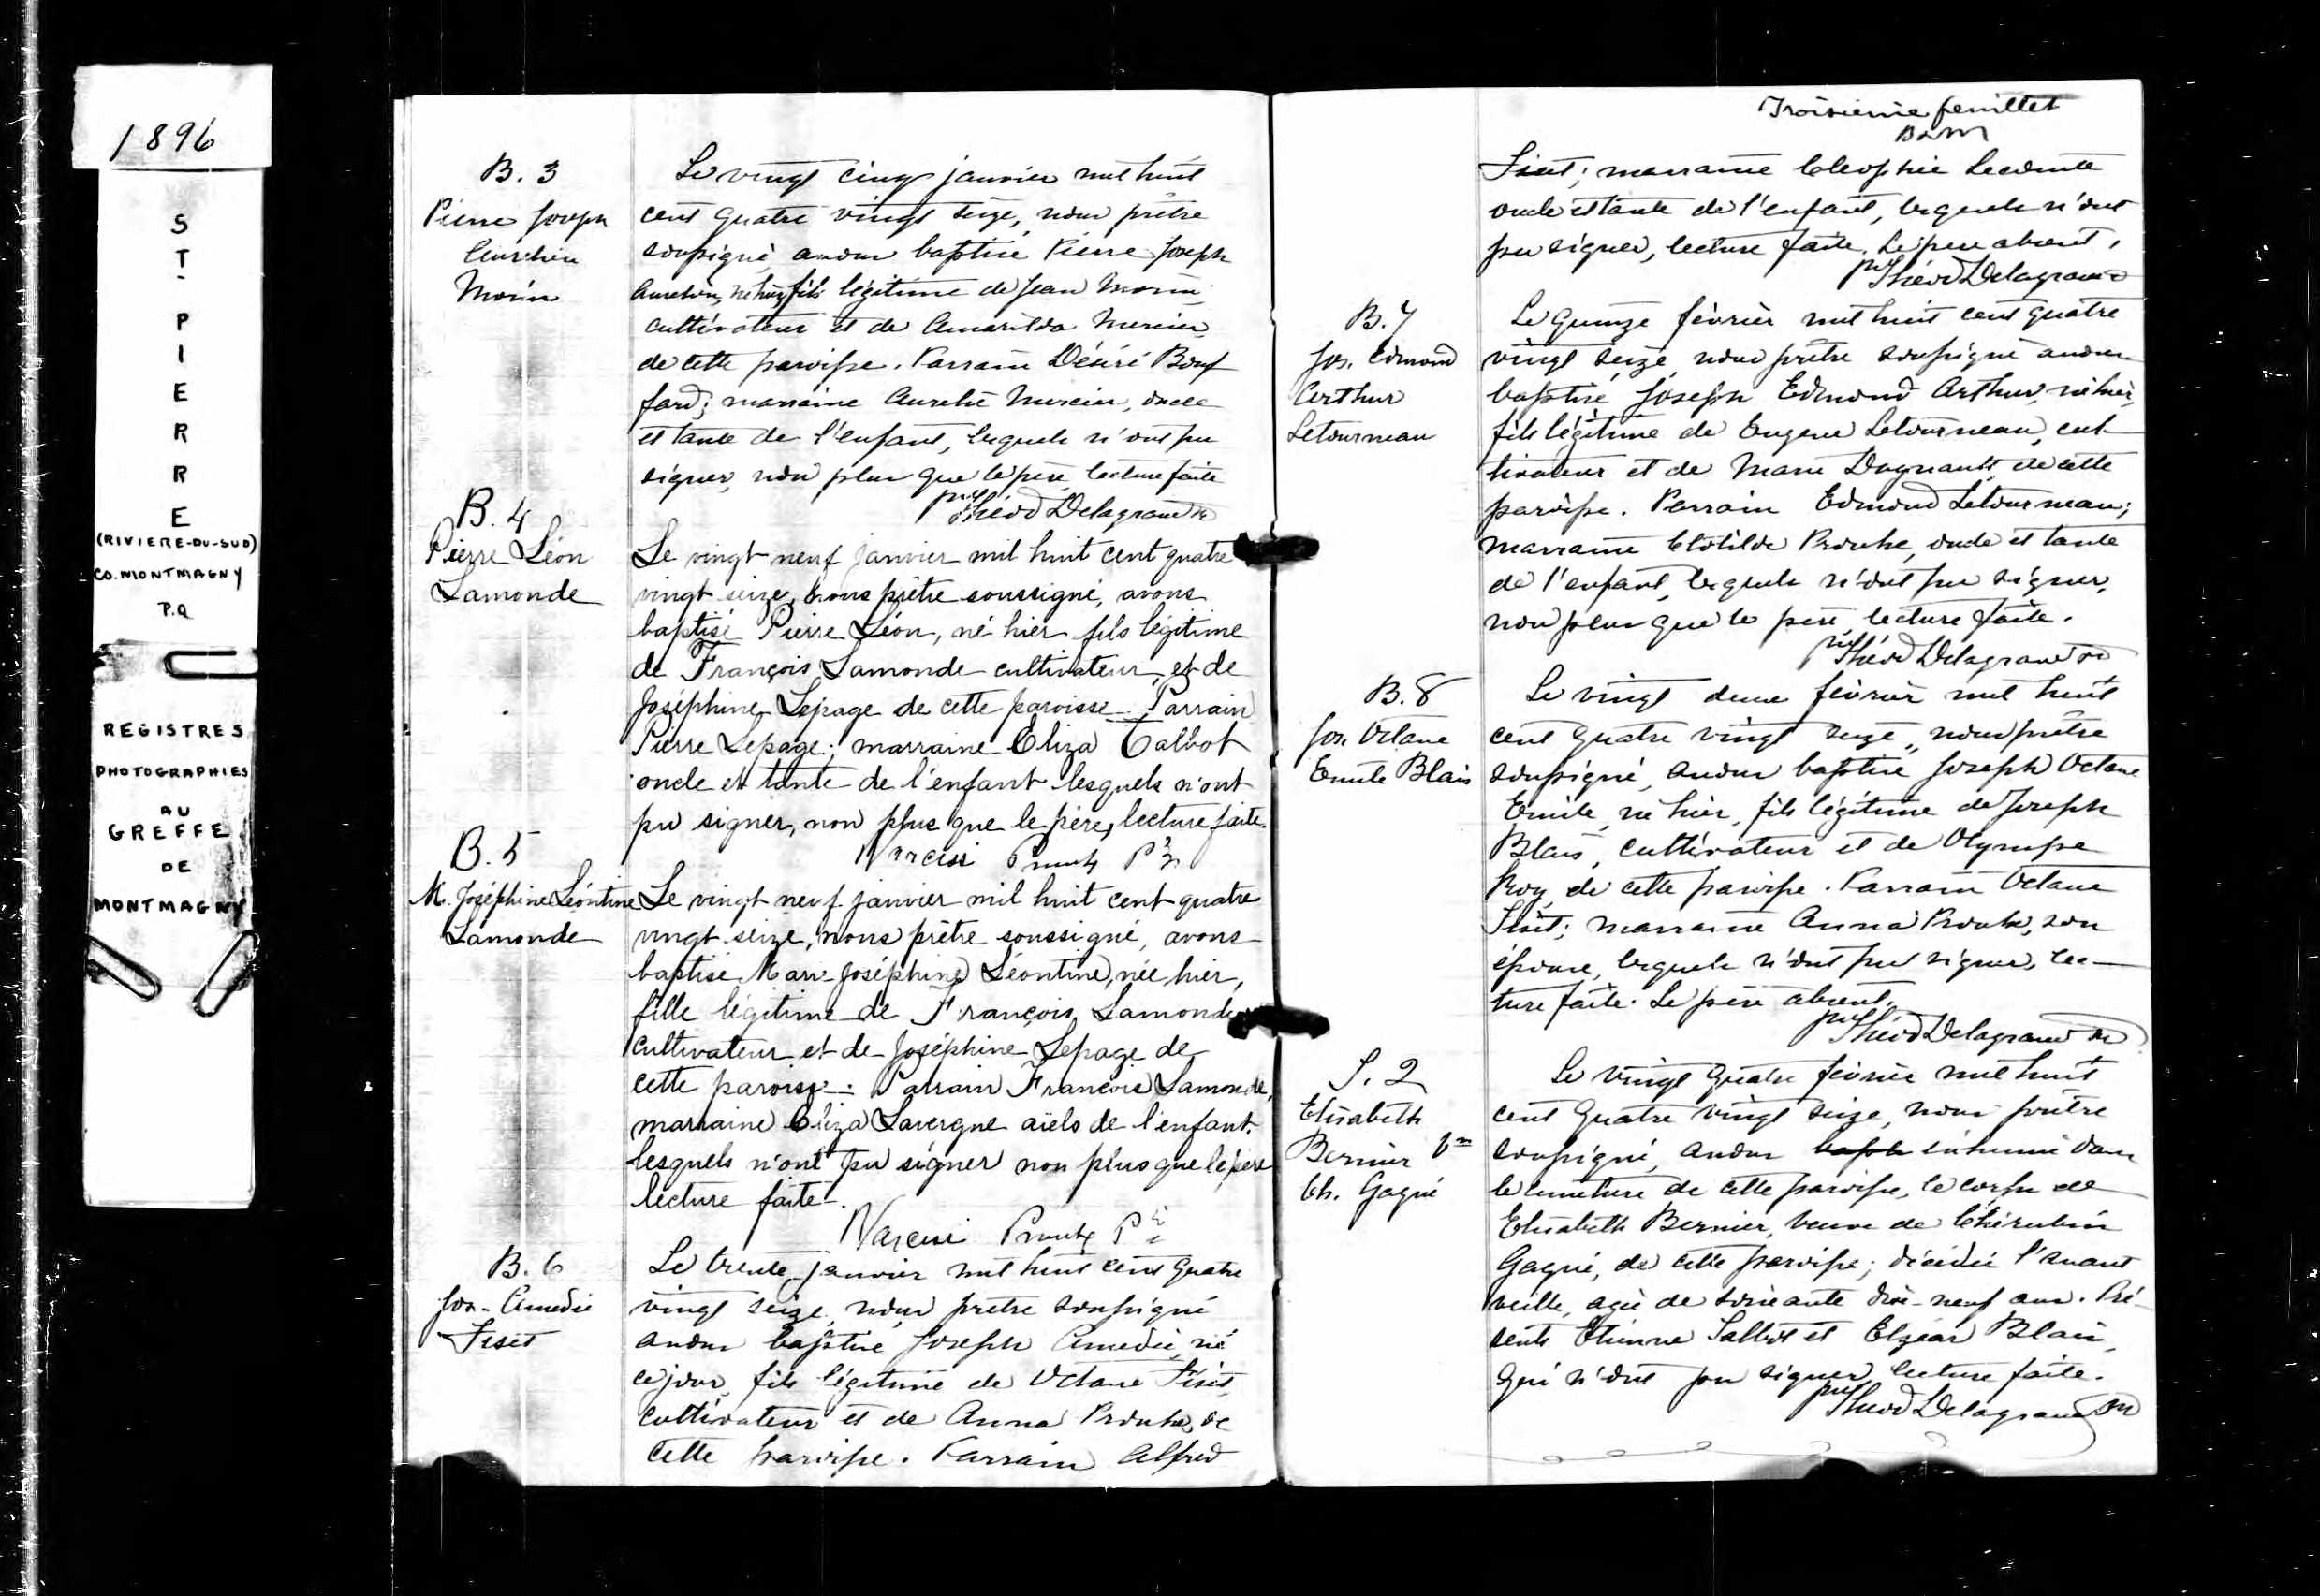 1896
ST-PIERRE
(RIVIERE-DU-SUD)
CO. MONTMAGNY
P.Q
REGISTRES
PHOTOGRAPHIES
AU
GREFFE
DE
MONTMAGNY
B. 3
Pierre Joseph
Aurélien
Morin
Le vingt cinq janvier mil huit
cent quatre vingt seize, nous prêtre
soussigné, avons baptisé Pierre Joseph
Aurélien, né hier, fils légitime de Jean Morin
cultivateur et de Amarilda Mercier
de cette paroisse. Parrain Désiré Bouf
fard; marraine Aurélie Mercier, oncle
et tante de l'enfant, lesquels n'ont pu
signer, non plus que le père, lecture faite
Théod Delagrave
B. 4
Pierre Léon
Lamonde
Le vingt-neuf janvier mil huit cent quatre
vingt seize, nous prêtre soussigné, avons
baptisé Pierre Léon, né hier fils légitime
de François Lamonde cultivateur, et de
Joséphine Lepage de cette paroisse. Parrain
Pierre Lepage; marraine Eliza Talbot
oncle et tante de l'enfant lesquels n'ont
pu signer, non plus que le père, lecture faite.
Narcisse Proulx Ptre
B. 5
M. Joséphine Léontine
Lamonde
Le vingt neuf janvier mil huit cent quatre
vingt seize, nous prêtre soussigné, avons
baptisé Marie Joséphine Léontine, née hier,
fille légitime de François Lamonde
cultivateur et de Joséphine Lepage de
cette paroisse. Parrain François Lamonde,
marraine Eliza Lavergne aïels de l'enfant.
lesquels n'ont pu signer non plus que le père
lecture faite.
Narcisse Proulx Ptre
B. 6
Jos-Amédée
Fiset
Le trente janvier mil huit cent quatre
vingt seize, nous prêtre soussigné
avons baptisé Joseph Amédée, né
ce jour, fils légitime de Octave Fiset,
cultivateur et de Anna Proulx, de
cette paroisse. Parrain Alfred
Troisième feuillet
Fiset; marraine Cléophie Lecomte
oncle et tante de l'enfant, lesquels n'ont
pu signer, lecture faite. Le père absent.
Théod Delagrave
B. 7
Jos. Edmond
Arthur
Letourneau
Le quinze février mil huit cent quatre
vingt seize, nous prêtre soussigné avons
baptisé Joseph Edmond Arthur, né hier,
fils légitime de Eugène Letourneau, cul-
tivateur et de Marie Dagneault, de cette
paroisse. Parrain Edmond Letourneau;
marraine Clotilde Proulx, oncle et tante
de l'enfant, lesquels n'ont pu signer,
non plus que le père, lecture faite.
Théod Delagrave
B. 8
Jos. Octave
Emile Blais
Le vingt deux février mil huit
cent quatre vingt seize, nous prêtre
soussigné, avons baptisé Joseph Octave
Emile, né hier, fils légitime de Joseph
Blais, cultivateur et de Olympe
Roy, de cette paroisse. Parrain Octave
Fiset; marraine Anna Proulx, son
épouse, lesquels n'ont pu signer, lec-
ture faite. Le père absent.
Théod Delagrave
S. 2
Elisabeth
Bernier Vve
Ch. Gagné
Le vingt quatre février mil huit
cent quatre vingt seize, nous prêtre
soussigné, avons bapt inhumé dans
le cimetière de cette paroisse, le corps de
Elisabeth Bernier, veuve de Chérubin
Gagné, de cette paroisse; décédée l'avant
veille, agée de soixante dix-neuf ans. Pré-
sents Etienne Talbot et Elzéar Blais,
qui n'ont pu signer, lecture faite.
Théod Delagrave